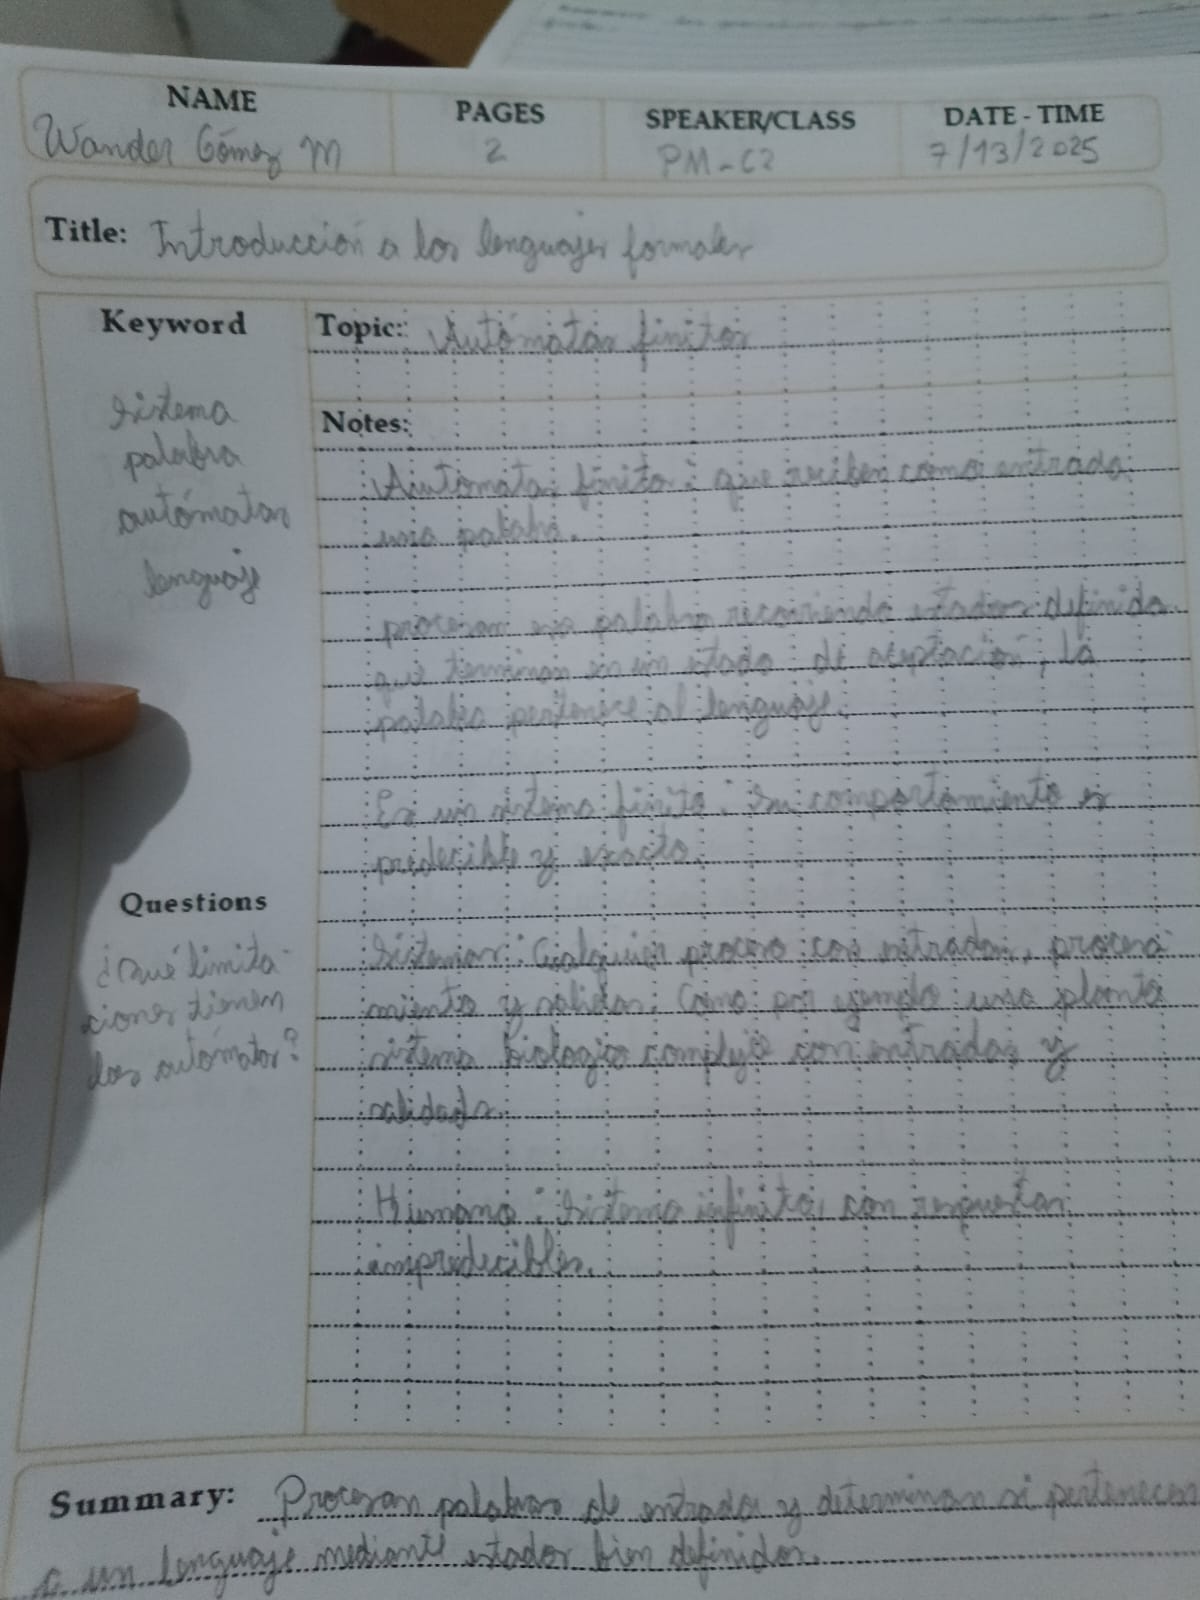 NAME
Wander Gómez M
PAGES
2
SPEAKER/CLASS
PM-C2
DATE - TIME
7/13/2025
Title: Introducción a los lenguajes formales
Keyword
sistema
palabra
autómatas
lenguaje
Topic: Autómatas finitos
Notes:
Autómatas finitos: que reciben como entrada
una palabra.
procesan esa palabra recorriendo estados definido
que terminan en un estado de aceptación, la
palabra pertenece al lenguaje.
Es un sistema finito: su comportamiento es
predecible y exacto.
Questions
¿Qué limita-
ciones tienen
los autómatas?
Sistemas: Cualquier proceso con entradas, procesa
miento y salidas. Como por ejemplo una planta
sistema biologico complejo con entradas y
salidads.
Humano: Sistema infinito, con respuestas
impredecibles.
Summary: Procesan palabras de entrada y determinan si pertenecen
a un lenguaje mediante estados bien definidos.